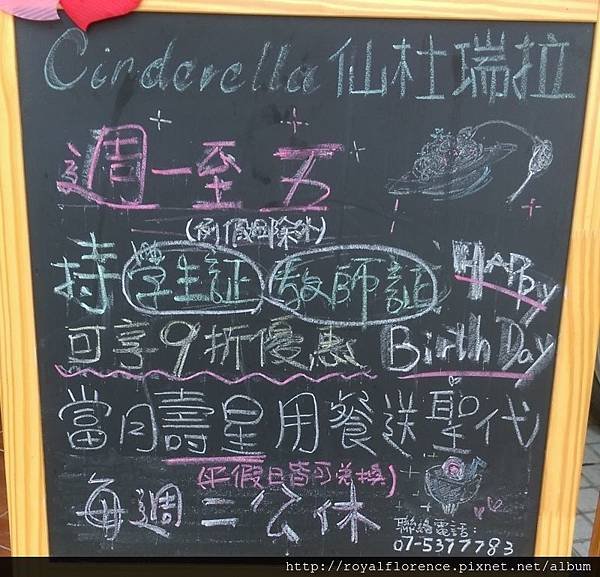 Cinderella 仙杜瑞拉
週一至五
(例假日除外)
持學生証、教師証
可享9折優惠
HAPPY
Birth Day
當月壽星用餐送聖代
(平假日皆可兌換)
每週二公休
聯絡電話:
07-5377783
http://royalflorence.pixnet.net/album